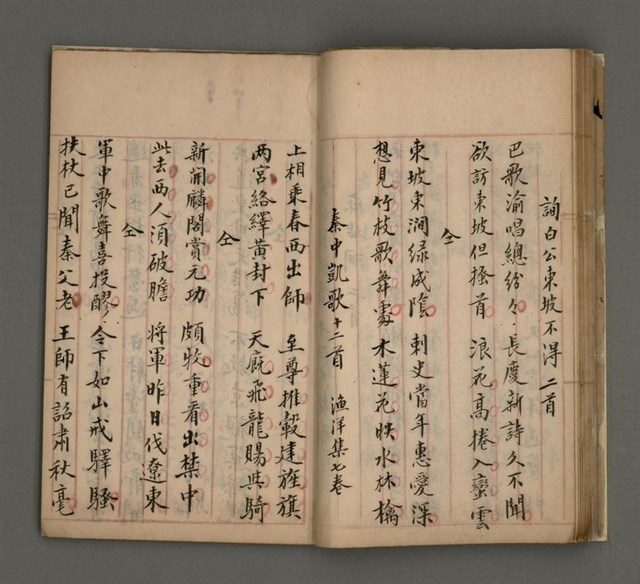 詢白公東坡不得 二首
巴歌渝唱總紛々 長慶新詩久不聞
欲訪東坡但搔首 浪花高捲入蠻雲
仝
東坡東澗綠成陰 刺史當年惠愛深
想見竹枝歌舞處 木蓮花映水林檎
秦中凱歌 十二首 漁洋集七卷
上相乘春西出師 至尊推轂建旌旗
两宮絡繹黃封下 天厩飛龍賜與騎
仝
新開麟閣賞元功 頗牧重看出禁中
此去西人須破膽 將軍昨日伐遼東
仝
軍中歌舞喜投醪 令下如山戒驛騷
扶杖已聞秦父老 王師有詔肅秋毫